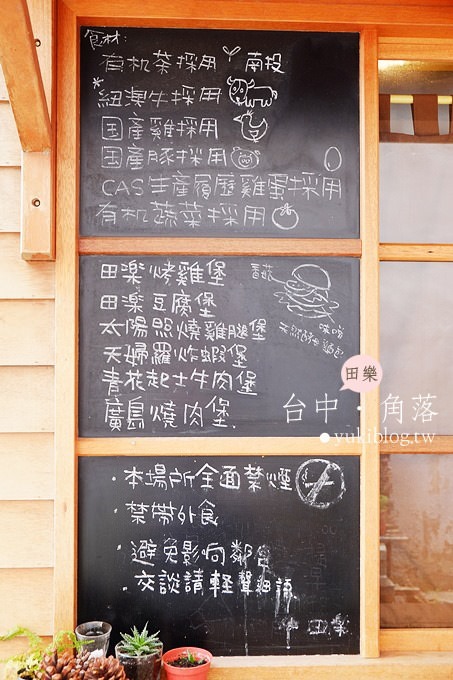 食材:
有机茶採用 南投
*紐澳牛採用
国産雞採用
国産豚採用
CAS生産履歴雞蛋採用
有机蔬菜採用
田楽烤雞堡
田楽豆腐堡
太陽照燒雞腿堡
天婦羅炸蝦堡
青花起士牛肉堡
廣島燒肉堡.
天然酵母麵包
田樂
台中·角落
●yukiblog.tw
·本場所全面禁煙
·禁帶外食
·避免影响鄰台
.交談請輕聲細語.
田楽